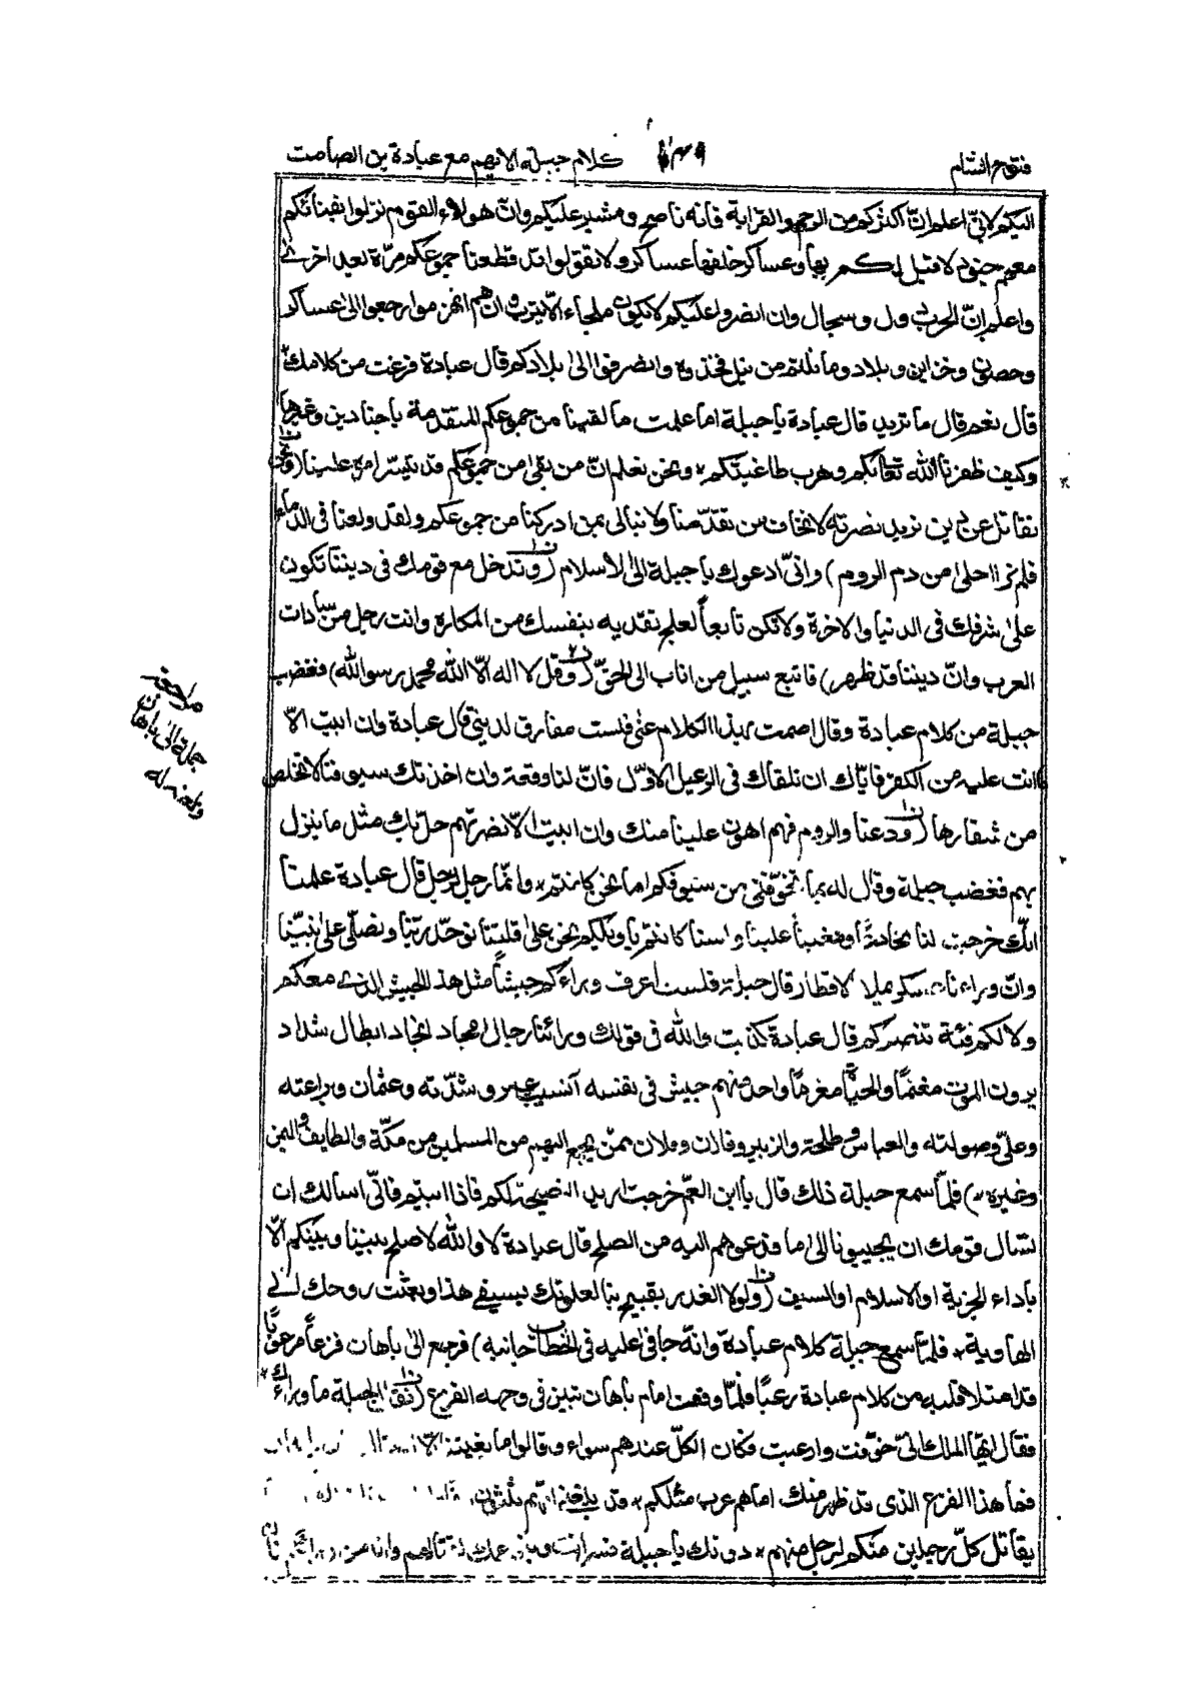 فتوح الشام
كلام جبلة الايهم مع عبادة بن الصامت
اليكم لاني اعلم ان اكثركم من الرحم والقرابة فانه ناصح ومشير عليكم وان هولاء القوم نزلوا بفنائكم
معهم جنود لا قبل لكم بها وعساكر خلفها عساكر ولا تقولوا قد قطعنا جموعكم مرّة بعد اخرى
واعلم ان الحرب دول وسجال وان انصروا عليكم لا يكون ملجاء الا يثرب وان هم انهزموا رجعوا الى عساكر
وحصون وخزاين وبلاد وما نلتم من نيل فخذوه وانصرفوا الى بلادكم قال عبادة فرغت من كلامك
قال نعم قال ما تريد قال عبادة يا جبلة اما علمت ما لقينا من جموعكم المتقدمة باجنادين وغيرها
وكيف ظفرنا الله تعالى بكم وهرب طاغيتكم ونحن نعلم انّ من بقى من جموعكم قد تيسّر امره علينا
نقاتل عن دين نريد نصرته لا نخاف من تقدّمنا ولا نبالى بمن ادركنا من جموعكم ولقد ولعنا فى الدماء
فلم نر احلى من دم الروم) وانّى ادعوك يا جبلة الى الاسلام (وتدخل مع قومك فى ديننا تكون
على شرفك فى الدنيا والاخرة ولا تكن تابعاً لعلج تفديه بنفسك من المكاره وانت رجل من سادات
العرب وانّ ديننا قد ظهر) فاتبع سبيل من اناب الى الحقّ (وقل لا اله الّا الله محمد رسو الله) فغضب
جبلة من كلام عبادة وقال اصمت بهذا الكلام عنى فلست مفارق لدينى قال عبادة وان ابيت الّا
انت عليه من الكفر فايّاك ان نلقاك فى الرعيل الاوّل فانّ لنا وقعة وان اخذتك سيوفنا لا تخلص
من شفارها (ودعنا والروم فهم اهون علينا منك وان ابيت الّا نصرتهم حلّ بك مثل ما ينزل
بهم فغضب جبلة وقال له بما تخوّفنى من سيوفكم اما نحن كانتم وانّما رجل لرجل قال عبادة علمنا
انّك خرجت لنا مخادعاً ومعيباً علينا ولسنا كانتم يا ويلكم نحن على قلتنا نوحّد ربّنا ونصلّى على نبيّنا
وانّ وراءنا عسكر يملا الاقطار قال جبلة فلست اعرف وراءكم جيشاً مثل هذا الجيش الذى معكم
ولا لكم فئة تنصركم قال عبادة كذبت والله فى قولك وورائنا رجال امجاد انجاد ابطال شداد
يرون الموت مغنمًا والحياة مغرمًا واحد منهم جيش فى نفسه آنسيت عمر وشدّته وعثمان وبراعته
وعلىّ وصولته والعباس وطلحة والزبير وفلان وفلان ممّن يجمع اليهم من المسلمين من مكّة والطايف واليمن
وغيره) فلمّا سمع جبلة ذلك قال يا ابن العمّ خرجت اريد النصيحة لكم فاذا ابيتم فانّى اسالك ان
لتسال قومك ان يجيبونا الى ما ندعوهم اليه من الصلح قال عبادة لا والله لا صلح بيننا وبينكم الّا
باداء الجزية او الاسلام او السيف (ولولا الغدر يقبح بنا لعلوتك بسيفى هذا وبعثت روحك الى
الهاوية فلمّا سمع جبلة كلام عبادة وانّه جافى عليه فى الخطاب جانبه) فرجع الى باهان فزعاً مرعوبًا
قد امتلا قلبه من كلام عبادة رعبًا فلمّا وقف امام باهان تبين فى وجهه الفزع (فقال لجبلة ما وراءك
فقال ايّها الملك انّى خوّفت وارعبت فكان الكلّ عندهم سواء وقالوا ما بغيتنا
فما هذا الفزع الذى قد ظهر منك اما هم عرب مثلكم قد بلغنى انهم ثلثون
يقاتل كلّ رجلين منكم لرجل منهم دونك يا جبلة فسر انت
مراجعة
جبلة الى باهان
ولعنه له